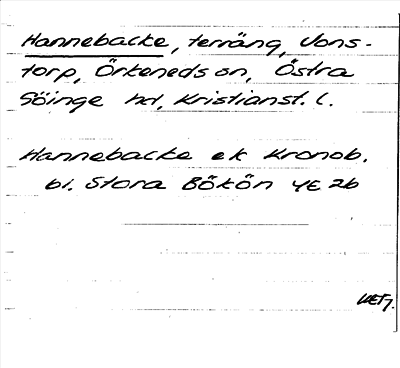 Hannebacke, terräng, Jons-
torp, Örkeneds sn, Östra
Göinge hd, Kristianst. l.
Hannebacke ek Kronob.
bl. Stora Bökön 4E 2b